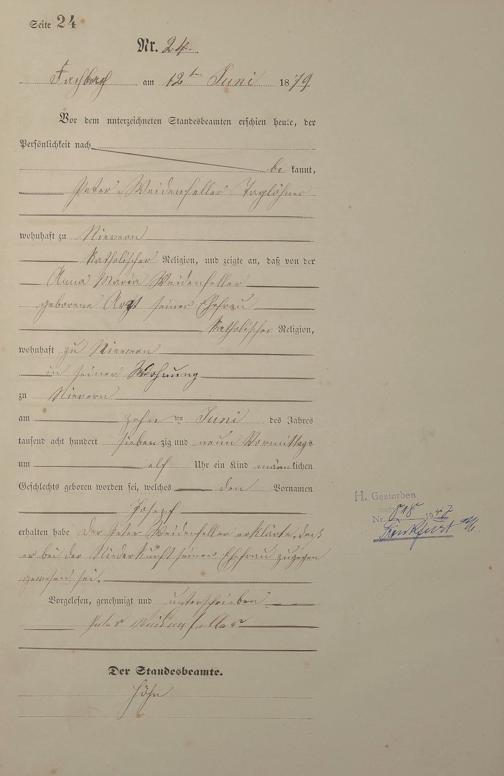 Seite 24
Nr. 24.
Fachbach am 12ten Juni 1879.
Vor dem unterzeichneten Standesbeamten erschien heute, der
Persönlichkeit nach
be kannt,
Peter Weidenfeller Taglöhner
wohnhaft zu Nievern
Katholischer Religion, und zeigte an, daß von der
Anna Maria Weidenfeller
geborene Arzt seiner Ehefrau
Katholischer Religion,
wohnhaft zu Nievern
in seiner Wohnung
zu Nievern
am zehn ten Juni des Jahres
tausend acht hundert sieben zig und neun Vormittags
um elf Uhr ein Kind männlichen
Geschlechts geboren worden sei, welches den Vornamen
Josepf
erhalten habe Der Peter Weidenfeller erklärte, daß
er bei der Niederkunft seiner Ehefrau zugegen
gewesen sei.
Vorgelesen, genehmigt und unterschrieben
Peter Weidenfeller
Der Standesbeamte.
Höhn
H. Gestorben
Nr. 818 1947
Frankfurt